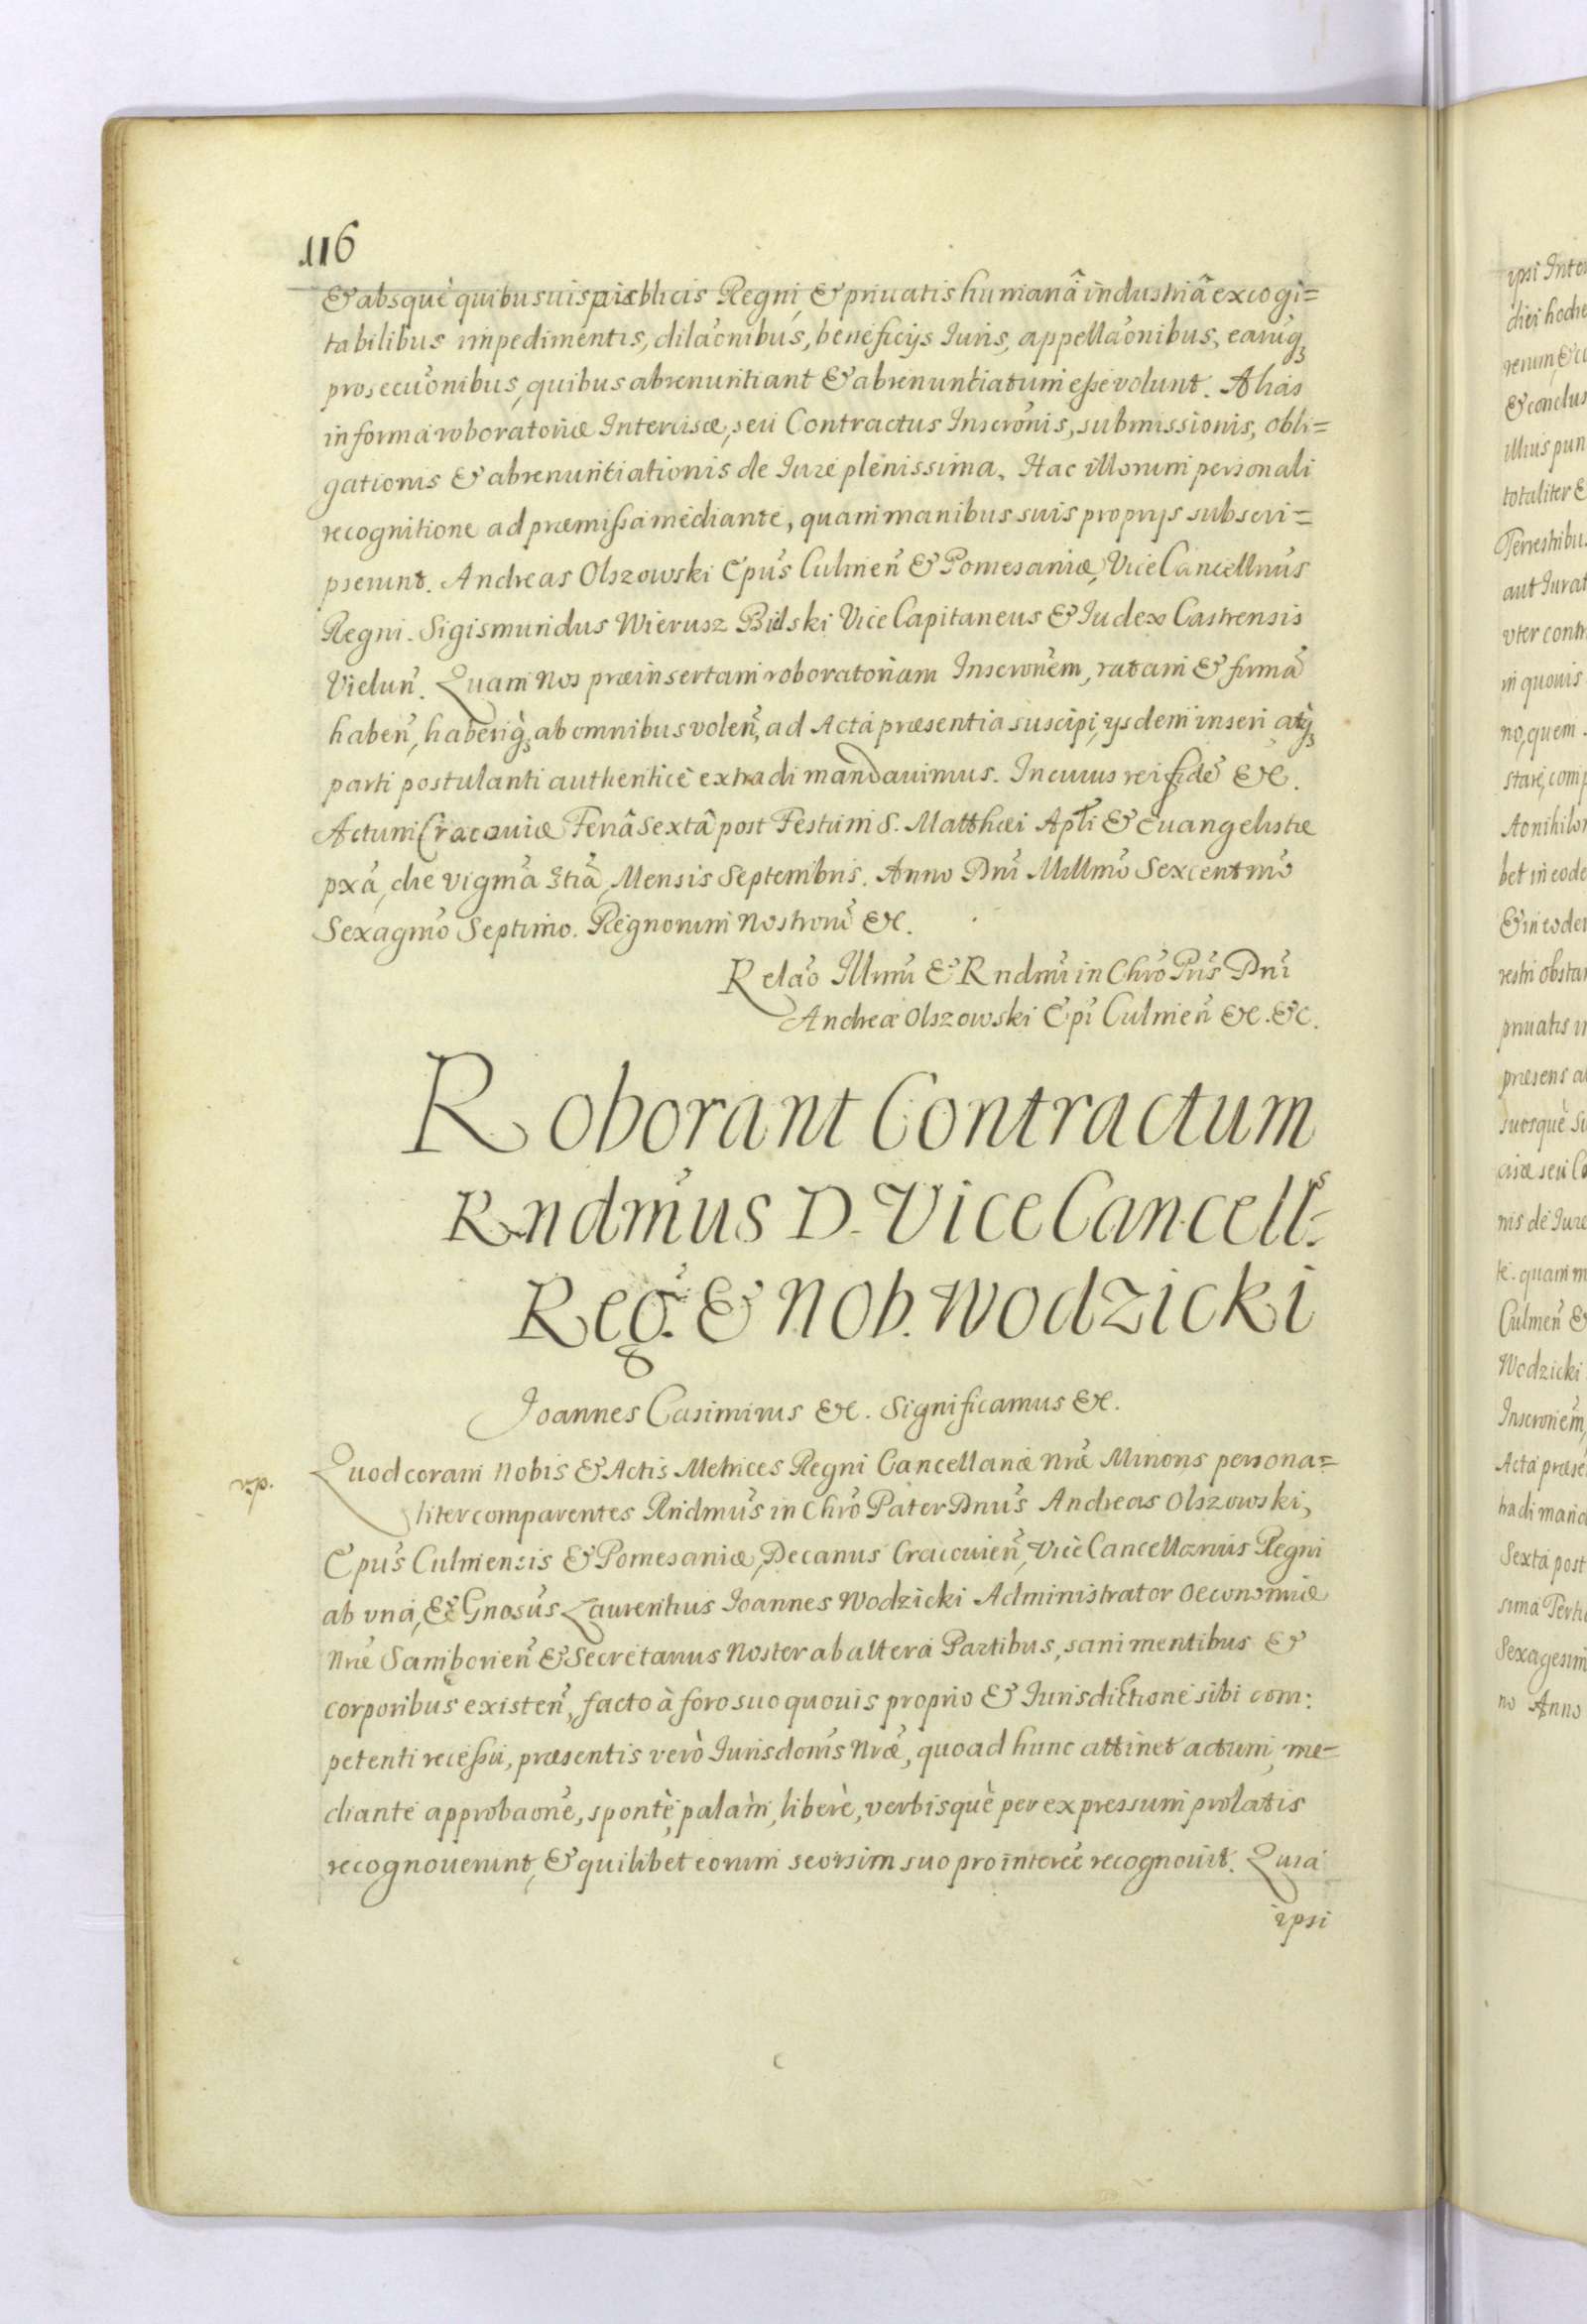 116
& absquè quibusuis publicis Regni, & priuatis humanâ industriâ excogi=
tabilibus impedimentis, dilaõnibus, beneficijs Iuris, appellaõnibus, earuq̨
prosecuõnibus, quibus abrenuntiant & abrenuntiatum eße volunt. Alias
in forma roboratoriæ Intercisæ, seu Contractus Inscrõnis, submissionis, obli=
gationis & abrenuntiationis de Iure plenissima. Hac illorum personali
recognitione ad præmißa mediante, quam manibus suis proprijs subscri=
pserunt. Andreas Olszowski Epũs Culmeñ & Pomesaniæ, Vice Cancellrius
Regni. Sigismundus Wierusz Bielski Vice Capitaneus & Iudex Castrensis
Vieluñ. Quam Nos præinsertam roboratoriam Inscrõnem, ratam & firmã
habeñ, haberiq̨, ab omnibus voleñ, ad Acta præsentia suscipi, ijsdem inseri atq̨
parti postulanti authenticè extradi mandauimus. In cuius rei fidẽ &c.
Actum Cracouiæ Feriâ Sextâ post Festum S. Matthæi Apłi & Euangelistæ
pxã, die vigmã 3tiã, Mensis Septembris. Anno Dnĩ Millmõ Sexcentmõ
Sexagmõ Septimo. Regnorum Nostrorũ &c.
Relaõ Illmĩ & Rndmĩ in Chrõ Pris Dnĩ
Andreæ Olszowski Epĩ Culmeñ &c. &c.
Roborant Contractum
Rndmũs D. Vice Cancells
Reg: & Nob. Wodzicki
Joannes Casimirus &c. Significamus &c.
Quod coram Nobis & Actis Metrices Regni Cancellariæ Nrẽ Minoris persona=
liter comparentes Rndmũs in Chrõ Pater Dnũs Andreas Olszowski,
Epũs Culmensis & Pomesaniæ, Decanus Cracouieñ, Vice Cancellarius Regni
ab vna, & Gnosũs Laurentius Ioannes Wodzicki Administrator Oeconomiæ
Nrẽ Samborieñ & Secretarius Noster ab altera Partibus, sani mentibus &
corporibus existeñ, facto à foro suo quouis proprio & Iurisdictione sibi com:
petenti receßu, præsentis verò Iurisdoñis Nrẽ, quoad hunc attinet actum, me=
diante approbaõne, spontè, palàm, liberè, verbisquè per expressum prolatis
recognouerunt, & quilibet eorum seorsim suo pro interee recognouit. Quia
ipsi